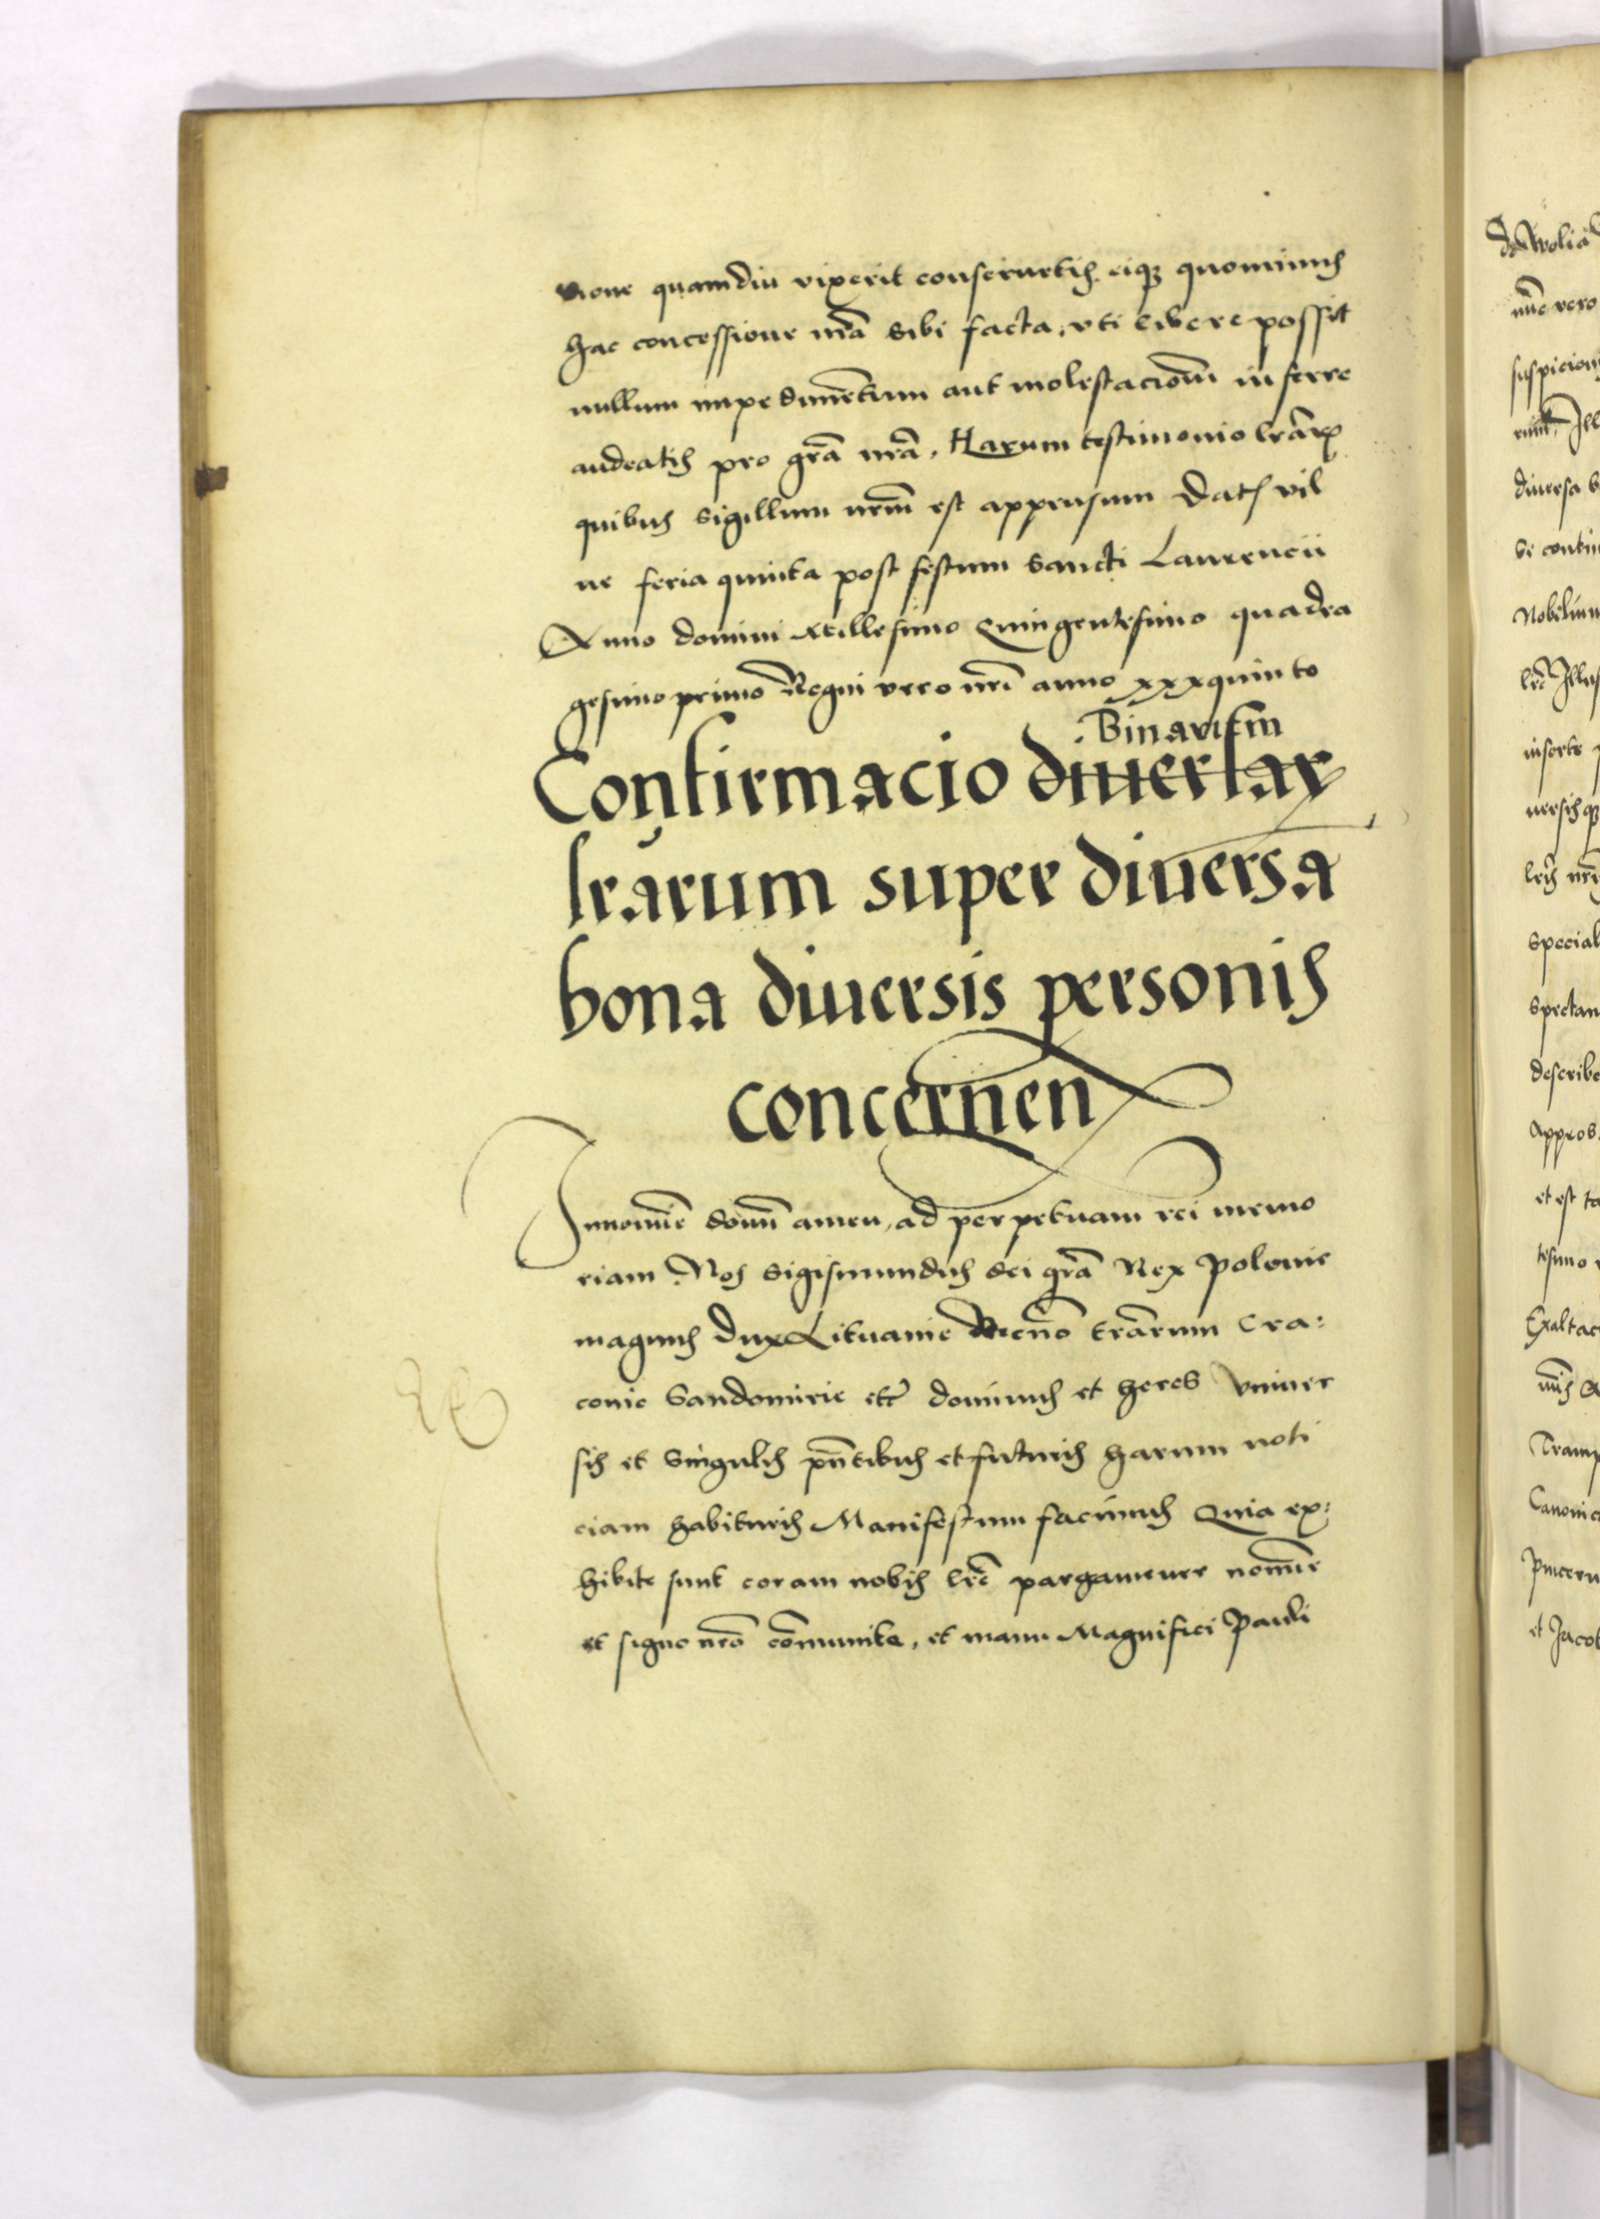 sione quamdiu vixerit conservetis eiqz quominus
hac concessione nrã sibi facta, uti libere possit
nullum impedimẽtum aut molestacionẽ inferre
audeatis pro grã nrã, Harum testimonio lrãrꝝ
quibus sigillum nrm̃ est appensum Dat vil
ne feria quinta post festum Sancti Laurencii
Anno domini Millesimo Quingentesimo quadra
gesimo primo Regni vero nrĩ anno xxxquinto
Binarum
Confirmacio diversaꝝ
lrãrum super diversa
bona diversis personis
concernen
In nomine domĩ amen, ad perpetuam rei memo
riam Nos Sigismundus dei grã Rex Polonie
magnus Dux Lituanie Necnõ trãrum Cra:
covie Sandomirie etc̃ dominus et heres Univer
sis et Singulis pñtibus et futuris harum noti
ciam habituris Manifestum facimus Quia ex:
hibite sunt coram nobis lrẽ pargamenee nomine
et signo nrõ cõmunite, et manu Magnifici Pauli
de Wolia
nũc vero
suspicion
diversa b
Nobilium
lrẽ Illus
inserte
versisqz
lrĩs nrĩ
Special
Spectan
describe
Approb
et est ta
tesimo
Exaltac
Tramp
Canonic
Pincern
et Jacob